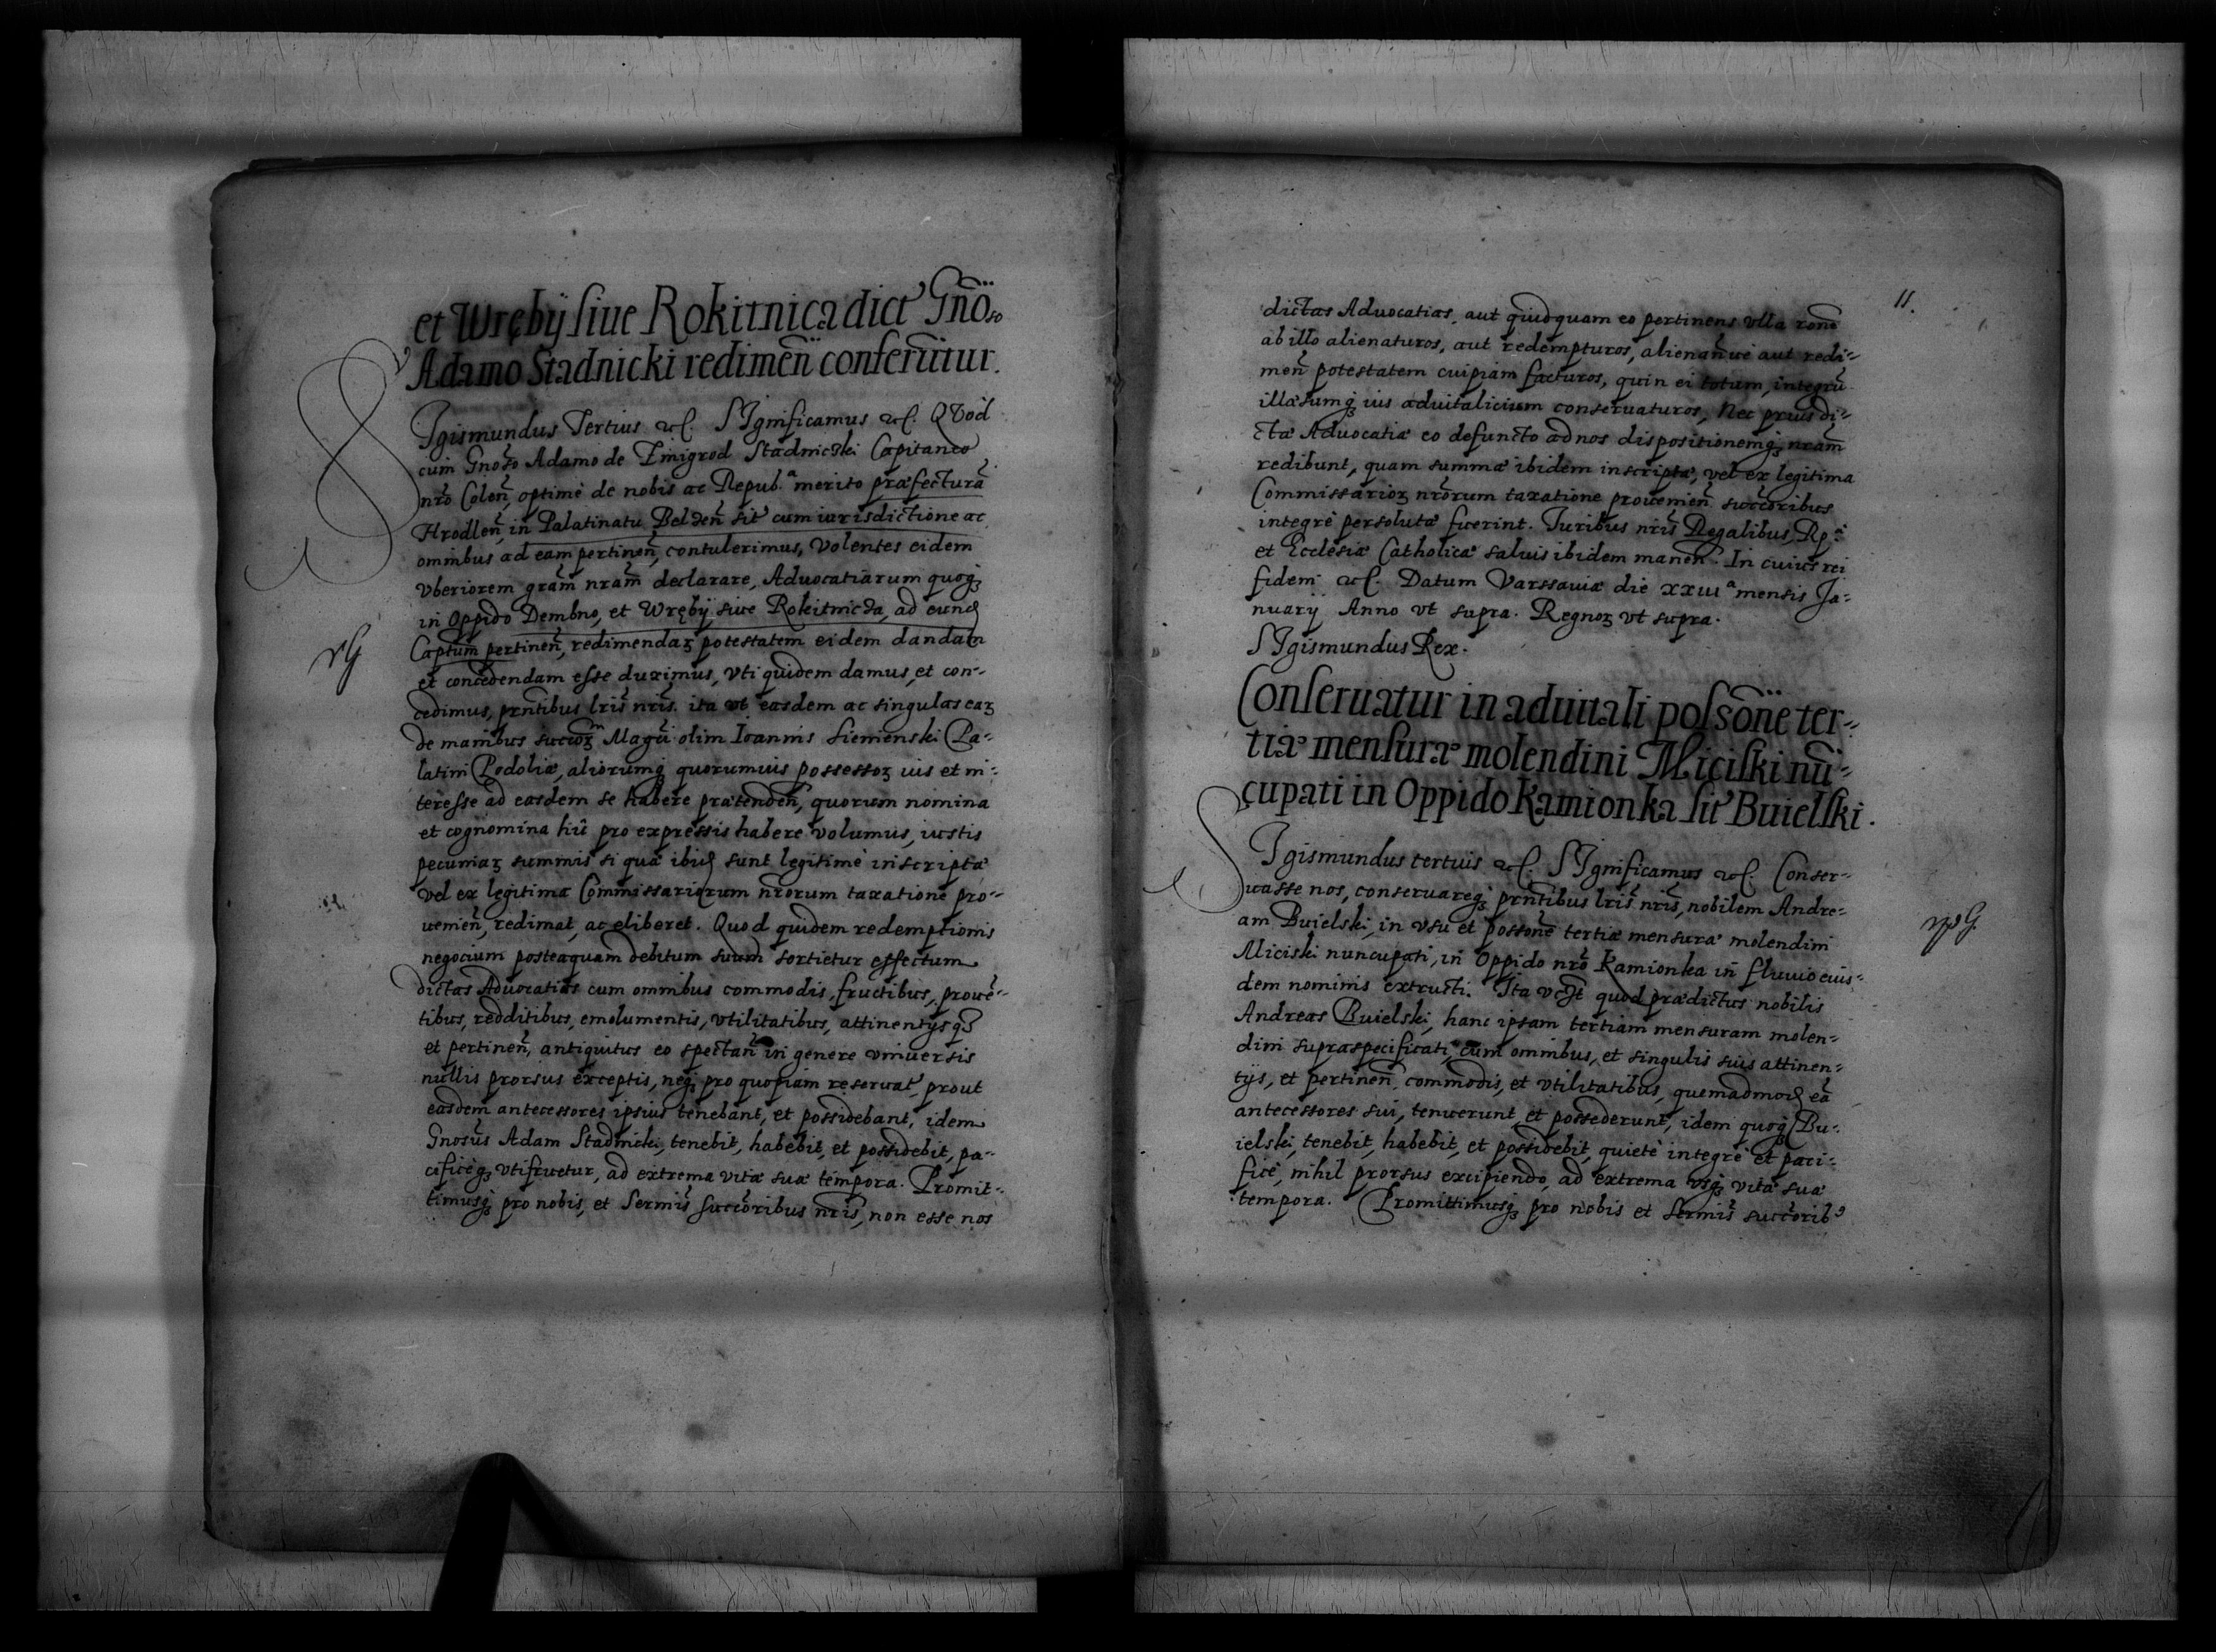 et Wręby siue Rokitnica dict Gnõso
Adamo Stadnicki redimeñ conferũtur.
SIgismundus Tertius etc. SIgnificamus etc. QVod
cum Gnoso Adamo de Zmigrod Stadniczki Capitaneo
nr̃o Colen̄, optimè de nobis ac Repub.ª merito præfecturã
Hrodlen̄, in Palatinatu Belzen̄ sit cum iurisdictione ac
omnibus ad eam pertinen̄, contulerimus, Volentes eidem
vberiorem gram̄ nram̄ declarare, Aduocatiarum quoqꝫ
in Oppido Dembno, et Wręby siue Rokitnicza, ad eund
Captum pertinen̄, redimendaꝝ potestatem eidem dandam
et concedendam esse duximus, vti quidem damus, et con-
cedimus, prn̄tibus lris̄ nris̄. ita vt easdem ac singulas eaꝝ
de manibus succoꝝ Magci olim Ioannis Sienienski Pa-
latini Podoliæ, aliorumqꝫ quorumuis possessoꝝ ius et in-
teresse ad easdem se habere prætenden̄, quorum nomina
et cognomina hic pro expressis habere volumus, iustis
pecuniaꝝ summis si quæ ibid sunt legitimè inscriptæ
vel ex legitima Commissariorum nr̄orum taxatione pro-
uenien̄, redimat, ac eliberet. Quod quidem redemptionis
negocium posteaquam debitum suum sortietur effectum
dictas Aduocatias cum omnibus commodis, fructibus, prouē-
tibus, redditibus, emolumentis, vtilitatibus, attinentijsqꝫ
et pertinen̄, antiquitus eo spectan̄ in genere vniuersis
nullis prorsus exceptis, neqꝫ pro quopiam reseruat, prout
easdem antecessores ipsius tenebant, et possidebant, idem
Gnosus Adam Stadnicki, tenebit, habebit, et possidebit, pa-
cificèqꝫ vtifruetur, ad extrema vitæ suæ tempora. Promit-
timusqꝫ pro nobis, et Sermis̄ succoribus nris̄, non esse nos
rG
11.
dictas Aduocatias, aut quidquam eo pertinens vlla rone
ab illo alienaturos, aut redempturos, alienan̄uè aut redi-
men̄ potestatem cuipiam facturos, quin ei totum, integrū
illæsumqꝫ ius aduitalicium conseruaturos, Nec prius di-
ctæ Aduocatiæ eo defuncto ad nos dispositionemqꝫ nram̄
redibunt, quam summæ ibidem inscriptæ, vel ex legitima
Commissarioꝝ nrōrum taxatione prouenien̄ succoribus
integrè persolutæ fuerint. Iuribus nris̄ Regalibus, Rp:
et Ecclesiæ Catholicæ saluis ibidem manen̄. In cuius rei
fidem etc. Datum Varssauiæ die XXIIIª mensis Ja-
nuarij Anno vt supra. Regnoꝝ vt supra.
SIgismundus Rex.
Conseruatur in aduitali possōne ter-
tiæ mensuræ molendini Miciski nū-
cupati in Oppido Kamionka sit Buielski.
SIgismundus tertius etc. SIgnificamus etc. Conser-
uasse nos, conseruareqꝫ prn̄tibus lris̄ nris̄, nobilem Andre-
am Buielski, in vsu et possone tertiæ mensuræ molendini
Miciski nuncupati, in Oppido nrō Kamionka in fluuio eius-
dem nominis extructi. Ita vt quod prædictus nobilis
Andreas Buielski, hanc ipsam tertiam mensuram molen-
dini supraspecificati, cum omnibus, et singulis suis attinen-
tijs, et pertinen̄ commodis, et vtilitatibus, quemadmod eā
antecessores sui, tenuerunt et possederunt, idem quoqꝫ Bu-
ielski, tenebit, habebit, et possidebit, quietè integrè et paci-
ficè, nihil prorsus excipiendo, ad extrema vsqꝫ vitæ suæ
tempora. Promittimusqꝫ pro nobis et Sermis̄ succorib⁹